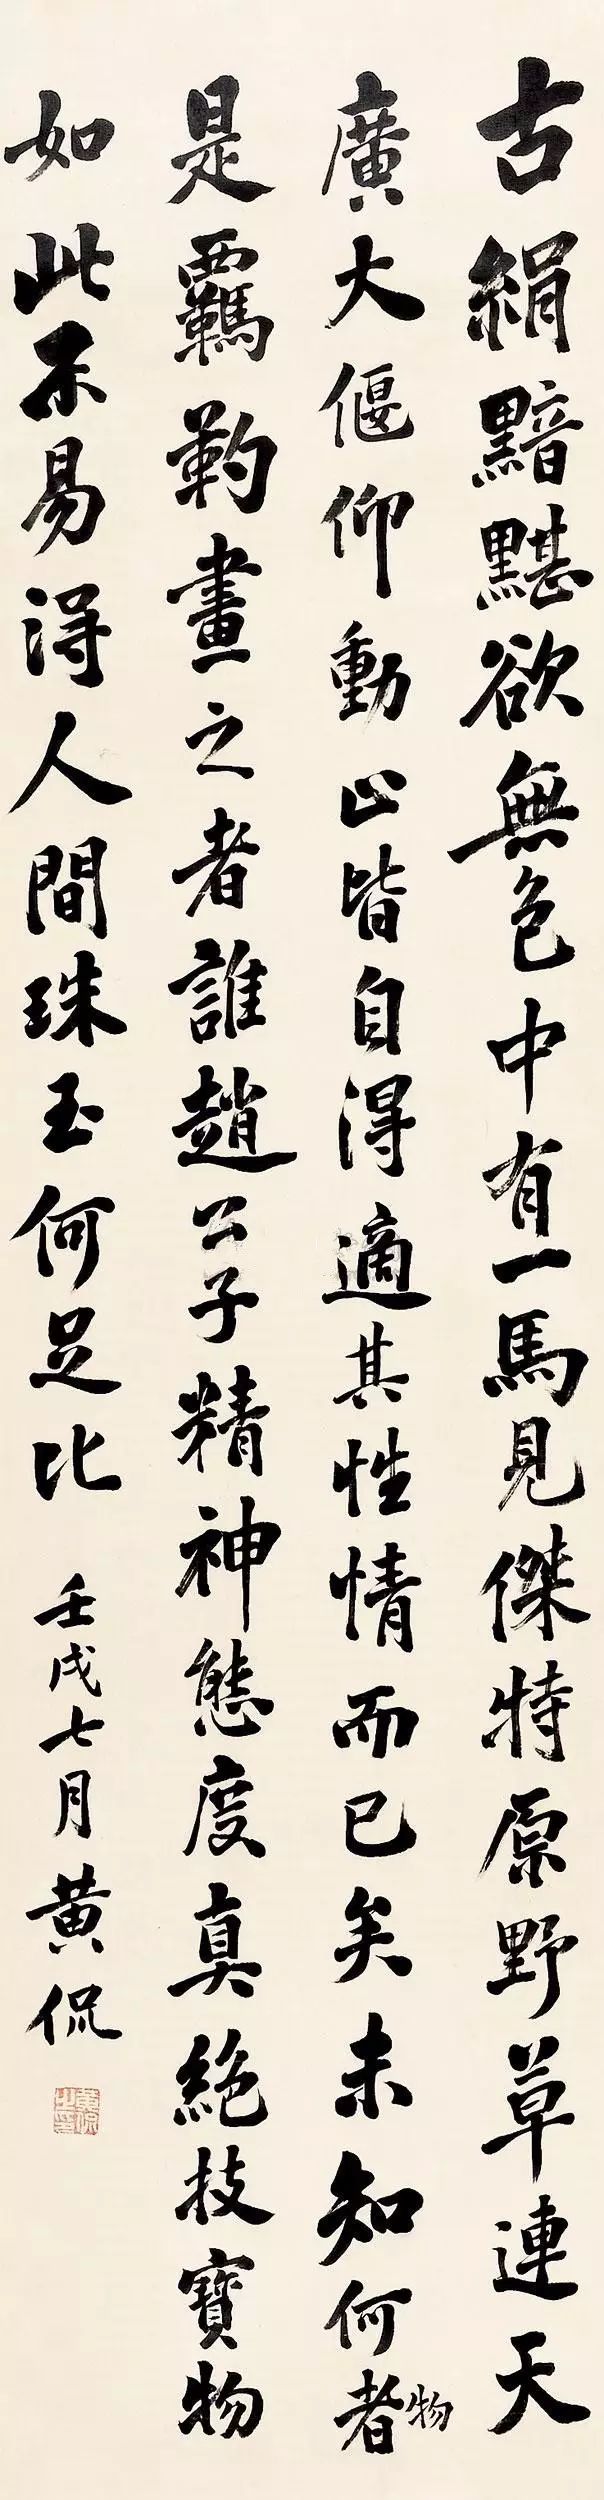 古絹黯黮欲無色中有一馬見傑特原野草連天
廣大偃仰動止皆自得適其性情而已矣未知何者
物
是羈靮畫之者誰趙公子精神態度真絶技寶物
如此不易得人間珠玉何足比
壬戌七月黄侃